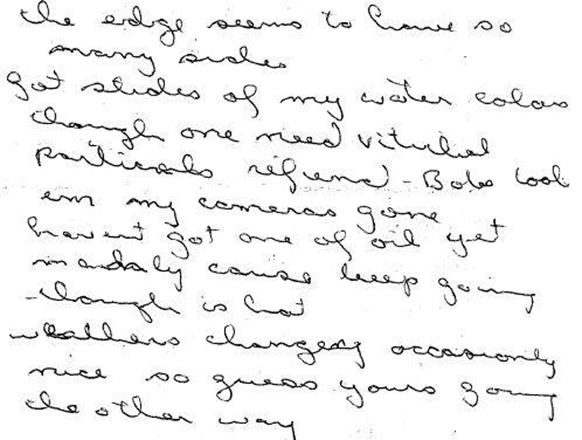 the edge seems to have so
many sides
got slides of my water colors
though one need
particals refund - Bobs took
em my cameras gone
havent got one of oil yet
cause keep going
though is hot
weathers changeg occasionly
nice so guess yours going
the other way